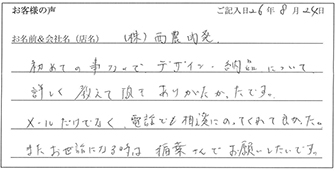 お客様の声 ご記入日26年8月25日
お名前&会社名(店名) (株)西農内発
初めての事なので デザイン・納品について
詳しく教えて頂て ありがたかったです。
メールだけでなく、電話でも相談にのってくれて良かった。
またお世話になる時は 稲葉さんでお願いしたいです。